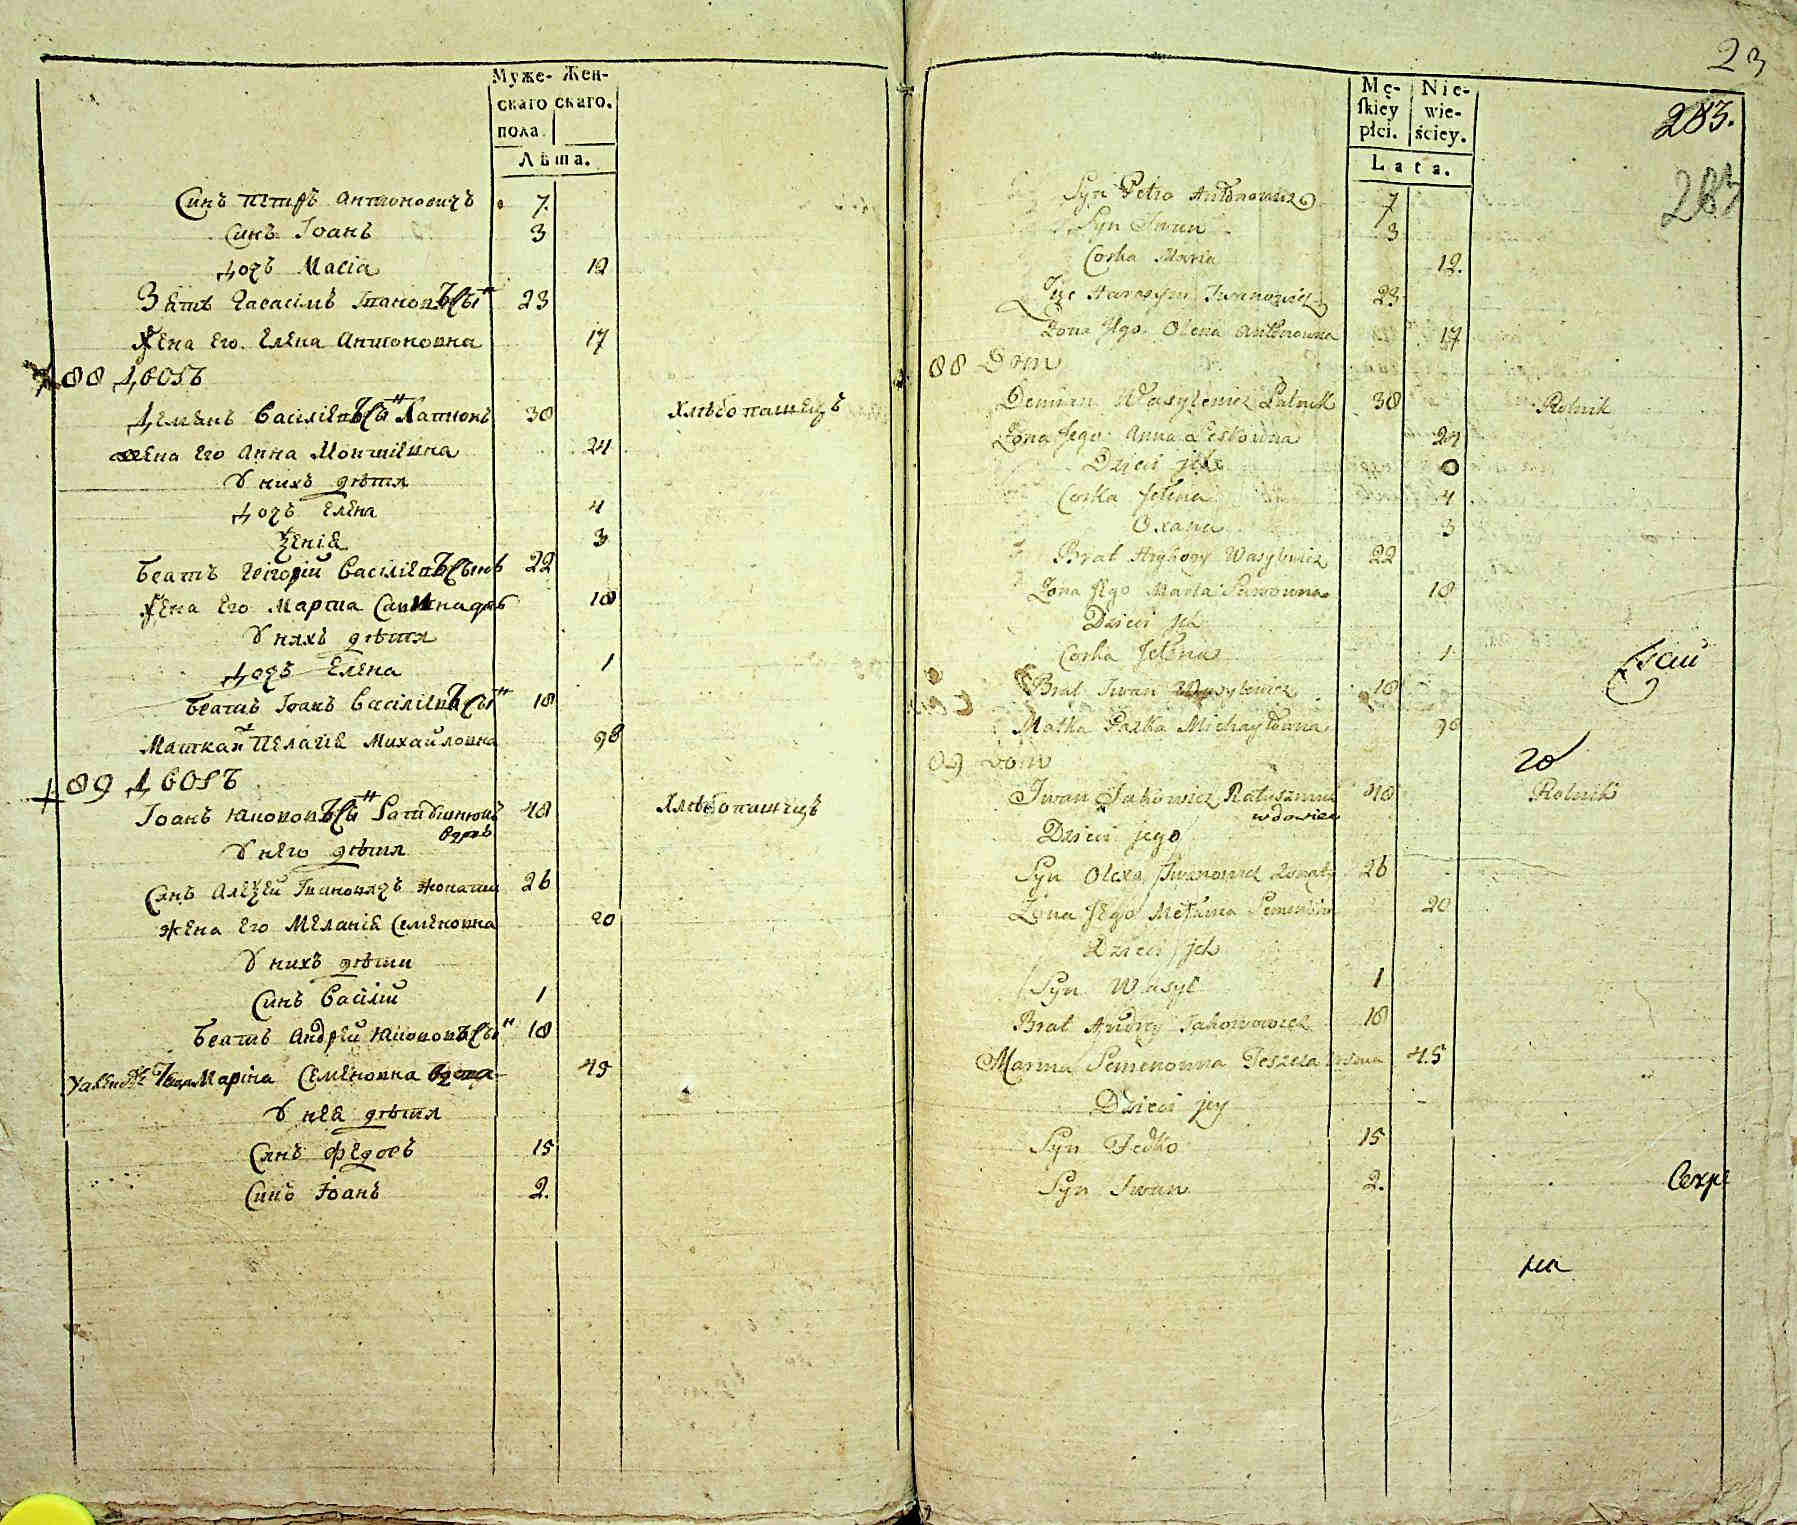 Муже- Жен-
скаго скаго.
пола.
Лѣта.
Синъ Петръ Антоновичъ 7.
Синъ Іоанъ 3
Дочъ Марія 12
Зять Гарасімъ Івановъ Сынъ 23
Жена Его Елена Антоновна 17
88 Дворъ
Демянъ Василіевъ Сынъ 30 Хлѣбопашецъ
жена Его Анна 24
У нихъ дѣти
Дочъ Елена 4
Ѯенія 3
Братъ Григорій Василіевъ Сынъ 22
Жена Его Марта 18
У нихъ дѣти
Дочъ Елена 1
Братъ Іоанъ Василіевъ Сынъ 18
Матка Пелагія Михайловна 98
89 Дворъ
Іоанъ Якововъ Сынъ 48 Хлѣбопашецъ
вдовъ
У него дѣти
Синъ Алеѯей Івановичъ жонатий 26
Жена Его Меланія Семеновна 20
У нихъ дѣти
Синъ Василій 1
Братъ Андрей Якововъ Сынъ 18
Маріна Семеновна вдова 45
У нея дѣти
Синъ Федоръ 15
Синъ Іоанъ 2.
23
Mę- Nie-
skiey wie-
płci. ściey.
Lata.
283.
283
Syn Petro Antonowicz 7
Syn Iwan 3
Corka Maria 12.
Zięc Harasym Iwanowicz 23
Żona Jego Olena Antonowna 17
88 Dom
Demian Wasylewicz 30 Rolnik
Żona Jego Anna 24
Dzieci jch
Corka Jelena 4
Oxana 3
Brat Hryhory Wasylewicz 22
Żona Jego Marta 18
Dzieci jch
Corka Jelena 1
Brat Iwan Wasylewicz 18
Matka Michayłowna 98
89 Dom
го
Iwan Jakowicz Ratuszniuk 48 Rolnik
wdowiec
Dzieci jego
Syn Olexa Iwanowicz żonaty 26
Żona Jego Mełania Semenowna 20
Dzieci jch
Syn Wasyl 1
Brat Andrey Jakowowicz 18
Marina Semenowna wdowa 45
Dzieci jey
Syn Fedko 15
Syn Iwan 2.
Секре
на